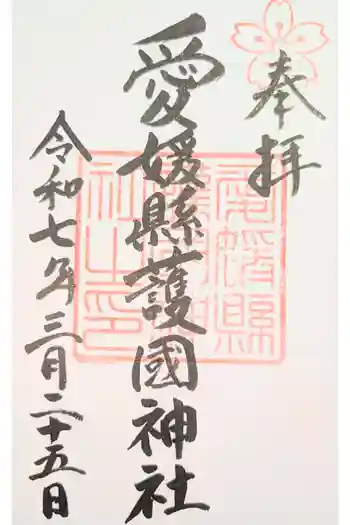 奉拝
愛媛縣護國神社
令和七年三月二十五日
愛媛縣
護國神
社之印